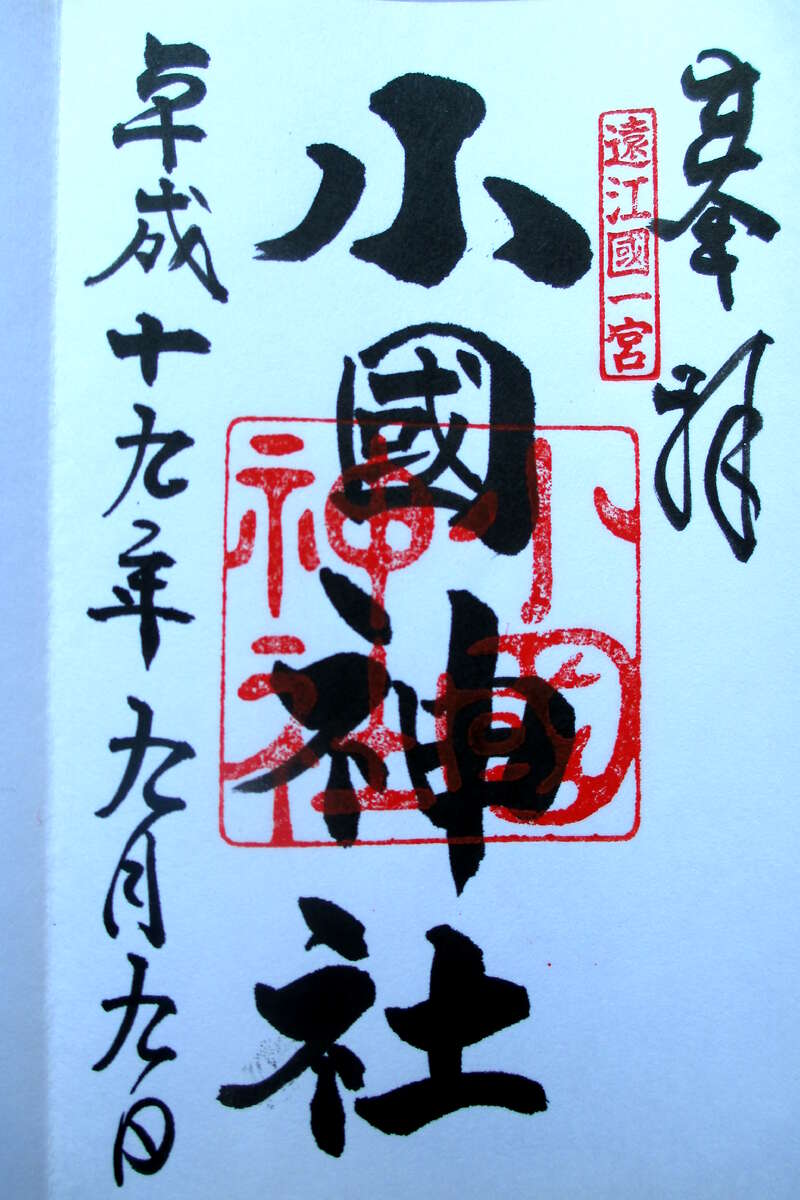 奉拝
遠江國一宮
小國神社
小國
神社
平成十九年九月九日